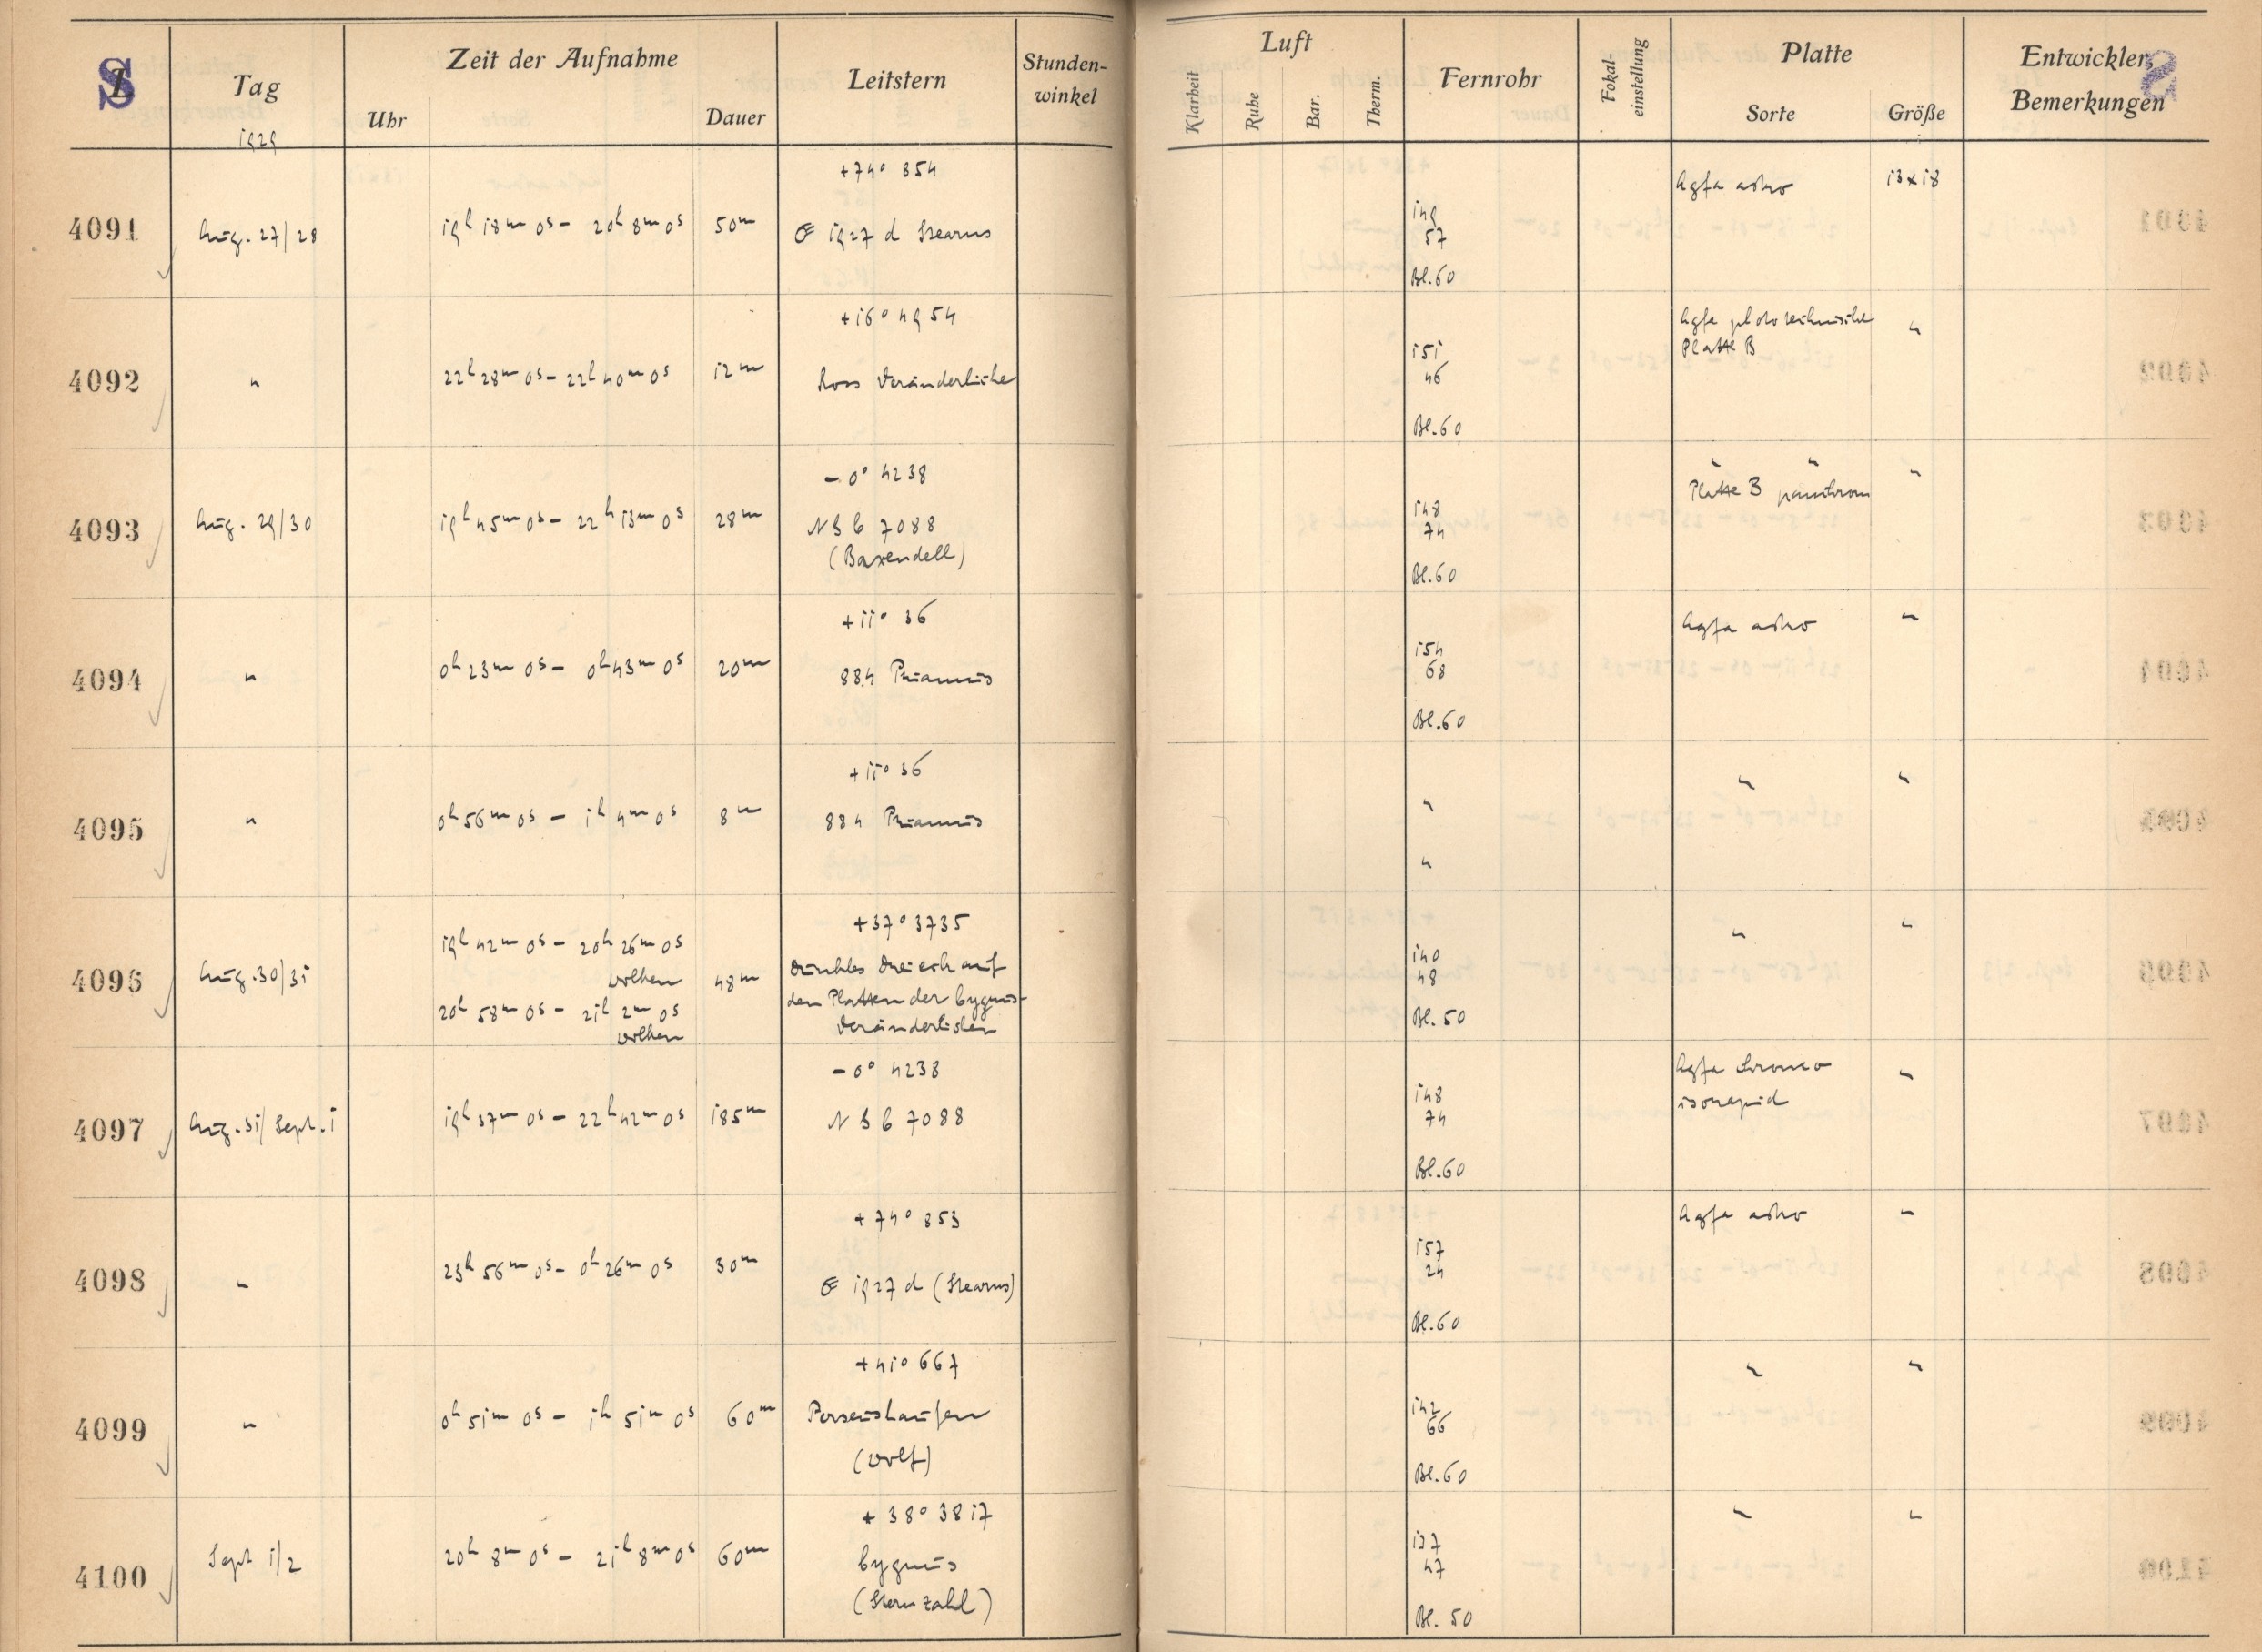 S
Tag
1929
Zeit der Aufnahme
Uhr
Dauer
Leitstern
Stunden-
winkel
Luft
Klarheit
Ruhe
Bar.
Therm.
Fernrohr
Fokal-
einstellung
Platte
Sorte
Größe
Entwickler,
Bemerkungen
4091
Aug. 27/28
19h 18m 0s – 20h 8m 0s
50m
+74° 854
1927 d Stearns
149
57
Bl. 60
Agfa astro
13×18
4092
"
22h 28m 0s – 22h 40m 0s
12m
+16° 4954
Ross Veränderliche
151
46
Bl. 60
Agfa phototechnische
Platte B
"
4093
Aug. 29/30
19h 45m 0s – 22h 13m 0s
28m
–0° 4238
N G C 7088
(Baxendell)
148
74
Bl. 60
" "
Platte B panchrom
"
4094
"
0h 23m 0s – 0h 43m 0s
20m
+11° 36
884 Priamus
154
68
Bl. 60
Agfa astro
"
4095
"
0h 56m 0s – 1h 4m 0s
8m
+11° 36
884 Priamus
"
"
"
"
4096
Aug. 30/31
19h 42m 0s – 20h 26m 0s
Wolken
20h 58m 0s – 21h 2m 0s
Wolken
48m
+37° 3735
dunkles Dreieck auf
den Platten der Cygnus-
Veränderlichen
140
48
Bl. 50
"
"
4097
Aug. 31/Sept. 1
19h 37m 0s – 22h 42m 0s
185m
–0° 4238
N G C 7088
148
74
Bl. 60
Agfa Chromo
isorapid
"
4098
"
23h 56m 0s – 0h 26m 0s
30m
+74° 853
1927 d (Stearns)
157
24
Bl. 60
Agfa astro
"
4099
"
0h 51m 0s – 1h 51m 0s
60m
+41° 667
Perseushaufen
(Wolf)
142
66
Bl. 60
"
"
4100
Sept 1/2
20h 8m 0s – 21h 8m 0s
60m
+38° 3817
Cygnus
(Sternzahl)
137
47
Bl. 50
"
"